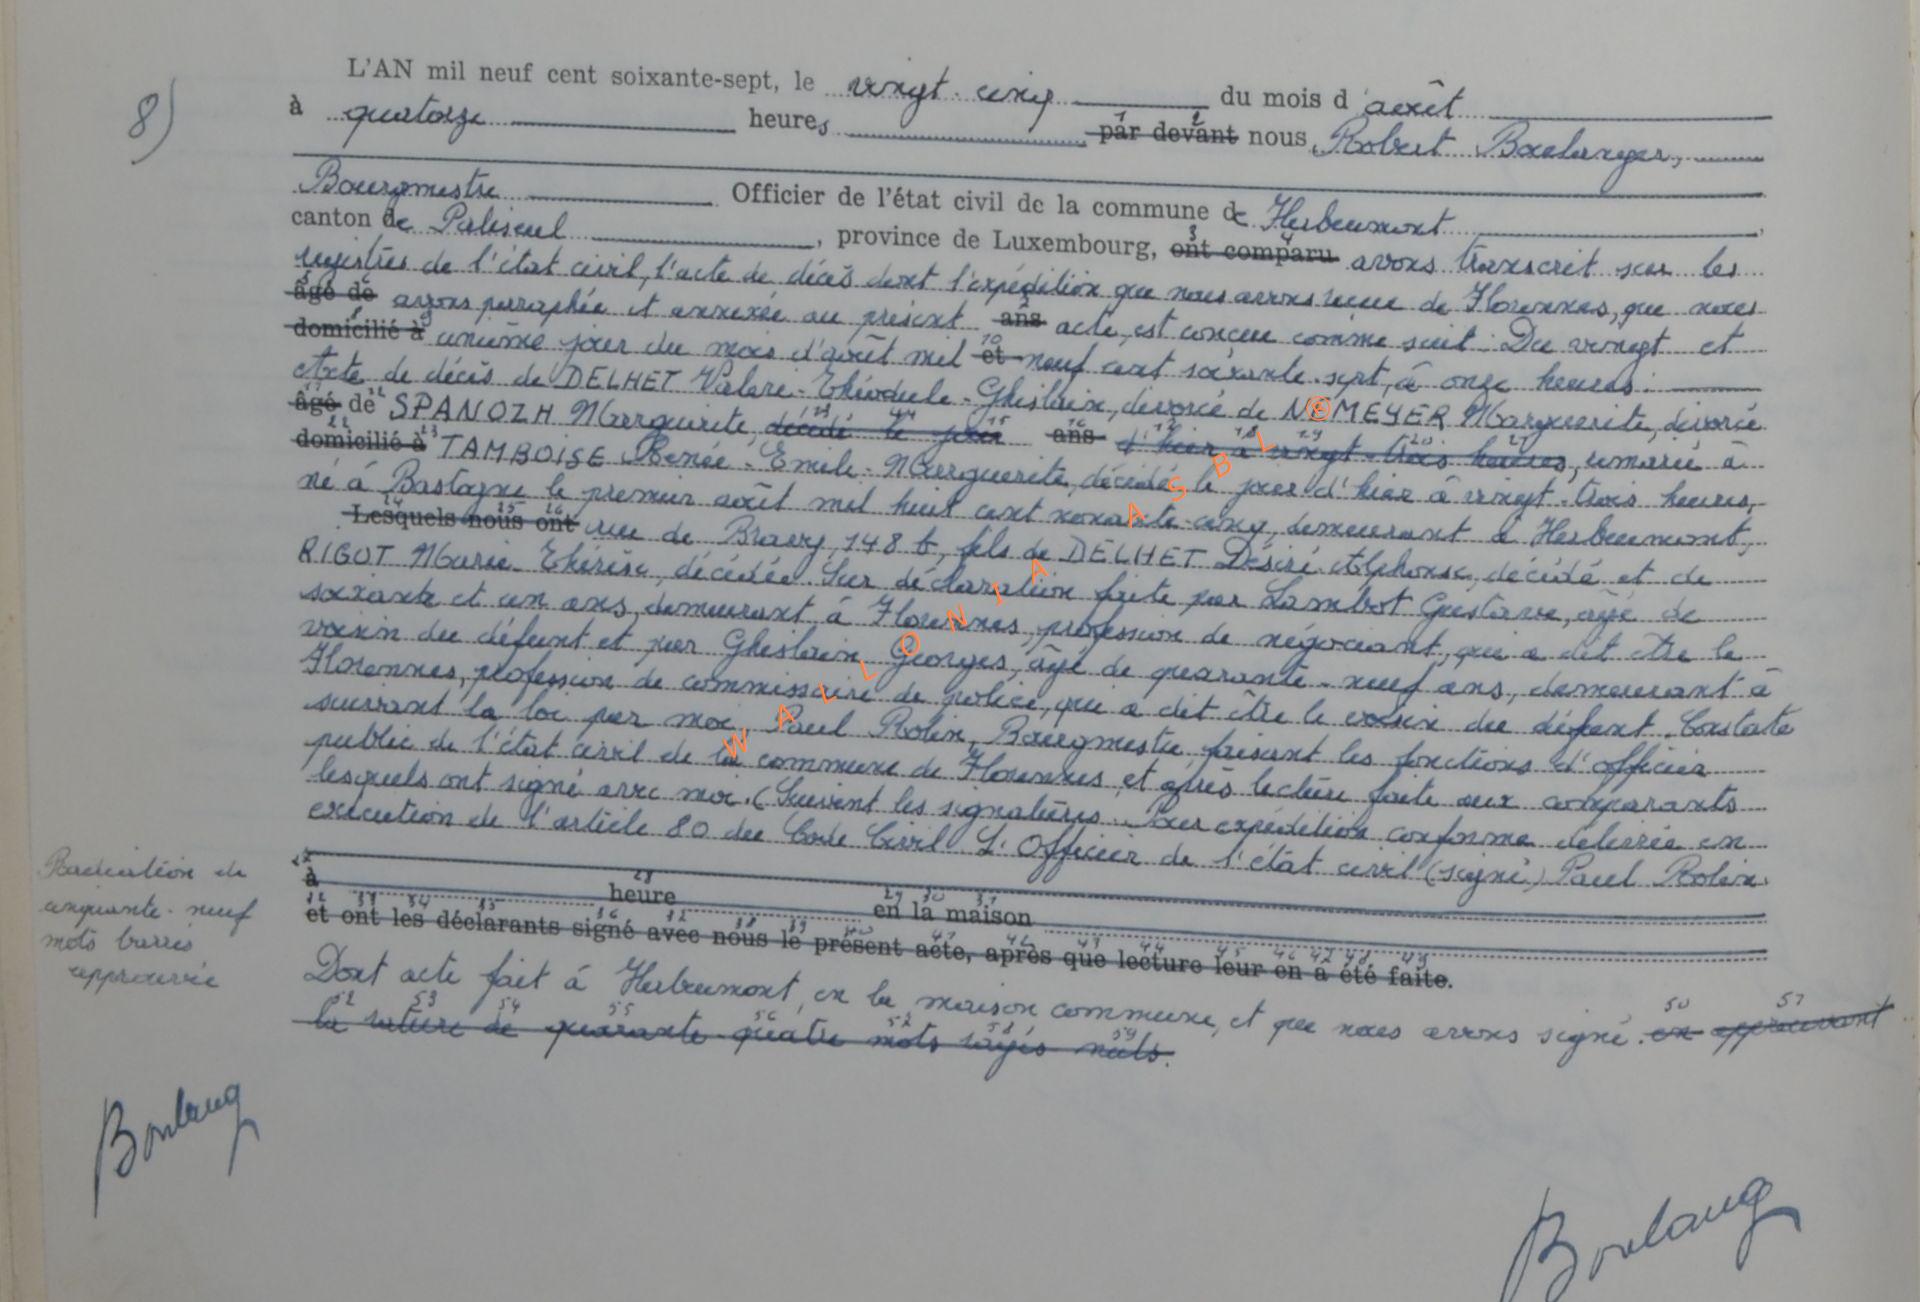 8)
L'AN mil neuf cent soixante-sept, le vingt-cinq du mois d'août
à quatorze heures par devant nous, Robert Boulanger,
Bourgmestre Officier de l'état civil de la commune de Herbeumont
canton de Paliseul, province de Luxembourg, ont comparu avons transcrit sur les
registres de l'état civil, l'acte de décès dont l'expédition que nous avons reçue de Florennes, que nous
âgé de avons paraphée et annexée au présent ans acte, est conçue comme suit : Du vingt et
domicilié à unième jour du mois d'août mil et neuf cent soixante-sept, à onze heures.
Acte de décès de DELHET Valère-Théodule-Ghislain, divorcé de MEYER Marguerite, divorcé
âgé de SPANOZH Marguerite, décédé le jour ans d'hier à vingt-trois heures, remarié à
domicilié à TAMBOISE Renée-Emile-Marguerite, décédé le jour d'hier à vingt-trois heures,
né à Bastogne le premier août mil huit cent nonante-cinq, demeurant à Herbeumont,
Lesquels nous ont rue de Bravy, 148 b, fils de DELHET Désiré Alphonse, décédé et de
RIGOT Marie-Thérèse, décédée. Sur déclaration faite par Lambot Gustave, âgé de
soixante et un ans, demeurant à Florennes, profession de négociant, qui a dit être le
voisin du défunt et par Ghislain Georges, âgé de quarante-neuf ans, demeurant à
Florennes, profession de commissaire de police, qui a dit être le voisin du défunt. Constaté
suivant la loi par moi, Paul Rolin, Bourgmestre faisant les fonctions d'officier
public de l'état civil de la commune de Florennes et après lecture faite aux comparants
lesquels ont signé avec moi. (Suivent les signatures. Pour expédition conforme délivrée en
exécution de l'article 80 du Code Civil L'Officier de l'état civil (signé) Paul Rolin.
à heure en la maison
et ont les déclarants signé avec nous le présent acte, après que lecture leur en a été faite.
Dont acte fait à Herbeumont, en la maison commune, et que nous avons signé. en approuvant
la rature de quarante-quatre mots rayés nuls.
Radiation de
cinquante-neuf
mots barrés
approuvée
Boulang
Boulang
WALLONIA ASBL ®